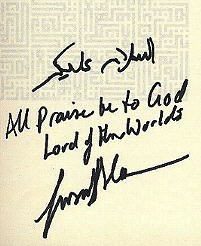 السلام عليكم
All Praise be to God
Lord of the Worlds